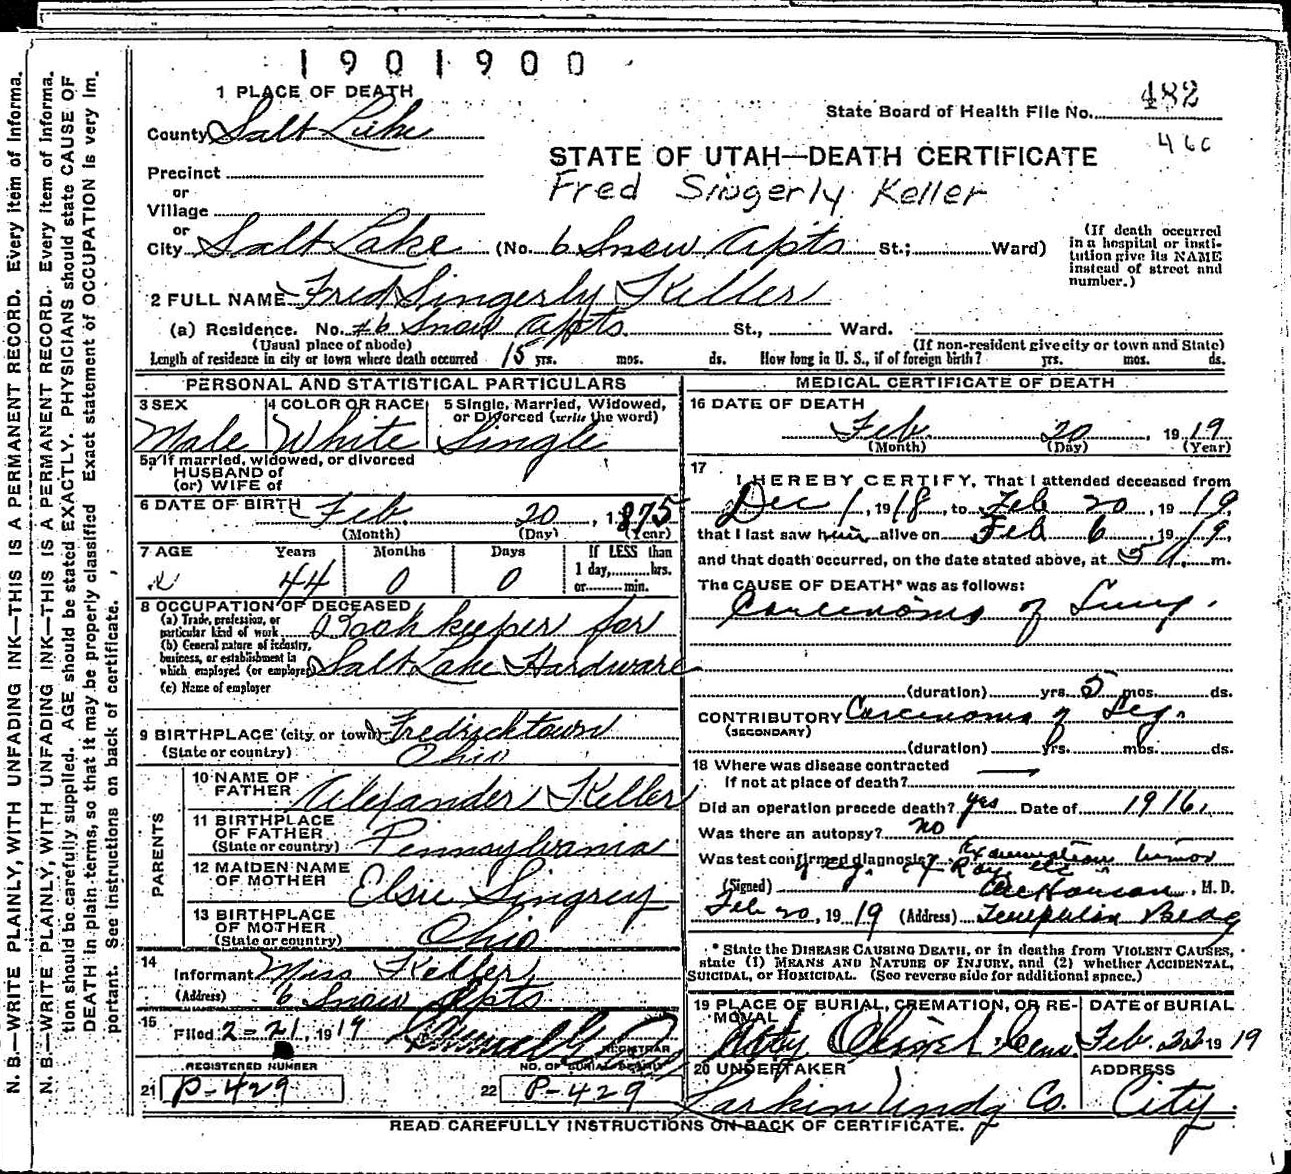 1901900
1 PLACE OF DEATH
482
State Board of Health File No.
460
County Salt Lake
STATE OF UTAH—DEATH CERTIFICATE
Precinct
Fred Singerly Keller
or
Village
or
City Salt Lake (No. 6 Snow Apts St.; Ward)
(If death occurred in a hospital or insti-
tution give its NAME
instead of street and
number.)
2 FULL NAME Fred Singerly Keller
(a) Residence. No. #6 Snow Apts. St., Ward.
(Usual place of abode) (If non-resident give city or town and State)
Length of residence in city or town where death occurred 15 yrs. mos. ds. How long in U. S., if of foreign birth? yrs. mos. ds.
PERSONAL AND STATISTICAL PARTICULARS
3 SEX 4 COLOR OR RACE 5 Single, Married, Widowed,
or Divorced (write the word)
Male White Single
5a If married, widowed, or divorced
HUSBAND of
(or) WIFE of
6 DATE OF BIRTH Feb. 20, 1875
(Month) (Day) (Year)
7 AGE Years Months Days If LESS than
1 day, hrs.
44 0 0 or min.
8 OCCUPATION OF DECEASED
(a) Trade, profession, or
particular kind of work Bookkeeper for
(b) General nature of industry,
business, or establishment in
which employed (or employer) Salt Lake Hardware
(c) Name of employer
9 BIRTHPLACE (city or town) Fredricktown
(State or country) Ohio
PARENTS
10 NAME OF
FATHER Alexander Keller
11 BIRTHPLACE
OF FATHER
(State or country) Pennsylvania
12 MAIDEN NAME
OF MOTHER Elsie Singrey
13 BIRTHPLACE
OF MOTHER
(State or country) Ohio
14
Informant Miss Keller
(Address) 6 Snow Apts
15
Filed 2-21, 1919
REGISTRAR
REGISTERED NUMBER NO. OF BURIAL PERMIT
21 P-429 22 P-429
MEDICAL CERTIFICATE OF DEATH
16 DATE OF DEATH
Feb. 20, 1919
(Month) (Day) (Year)
17
I HEREBY CERTIFY, That I attended deceased from
Dec 1, 1918, to Feb 20, 1919
that I last saw him alive on Feb 6, 1919,
and that death occurred, on the date stated above, at 5 A. m.
The CAUSE OF DEATH* was as follows:
Carcinoma of Lung.
(duration) yrs. 5 mos. ds.
CONTRIBUTORY Carcinoma of Leg.
(SECONDARY)
(duration) yrs. mos. ds.
18 Where was disease contracted
If not at place of death?
Did an operation precede death? yes Date of 1916.
Was there an autopsy? no
Was test confirmed diagnosis? Examination tumor
of leg. X Ray etc
(Signed) , M. D.
Feb 20, 1919 (Address) Templeton Bldg
* State the DISEASE CAUSING DEATH, or in deaths from VIOLENT CAUSES,
state (1) MEANS AND NATURE OF INJURY, and (2) whether ACCIDENTAL,
SUICIDAL, or HOMICIDAL. (See reverse side for additional space.)
19 PLACE OF BURIAL, CREMATION, OR RE-
MOVAL DATE of BURIAL
Mt Olivet Cem. Feb. 22 1919
20 UNDERTAKER ADDRESS
Larkin Undg Co. City.
READ CAREFULLY INSTRUCTIONS ON BACK OF CERTIFICATE.
N. B.—WRITE PLAINLY, WITH UNFADING INK—THIS IS A PERMANENT RECORD. Every item of informa-
N. B.—WRITE PLAINLY, WITH UNFADING INK—THIS IS A PERMANENT RECORD. Every item of informa-
tion should be carefully supplied. AGE should be stated EXACTLY. PHYSICIANS should state CAUSE OF
DEATH in plain terms, so that it may be properly classified. Exact statement of OCCUPATION is very im-
portant. See instructions on back of certificate.